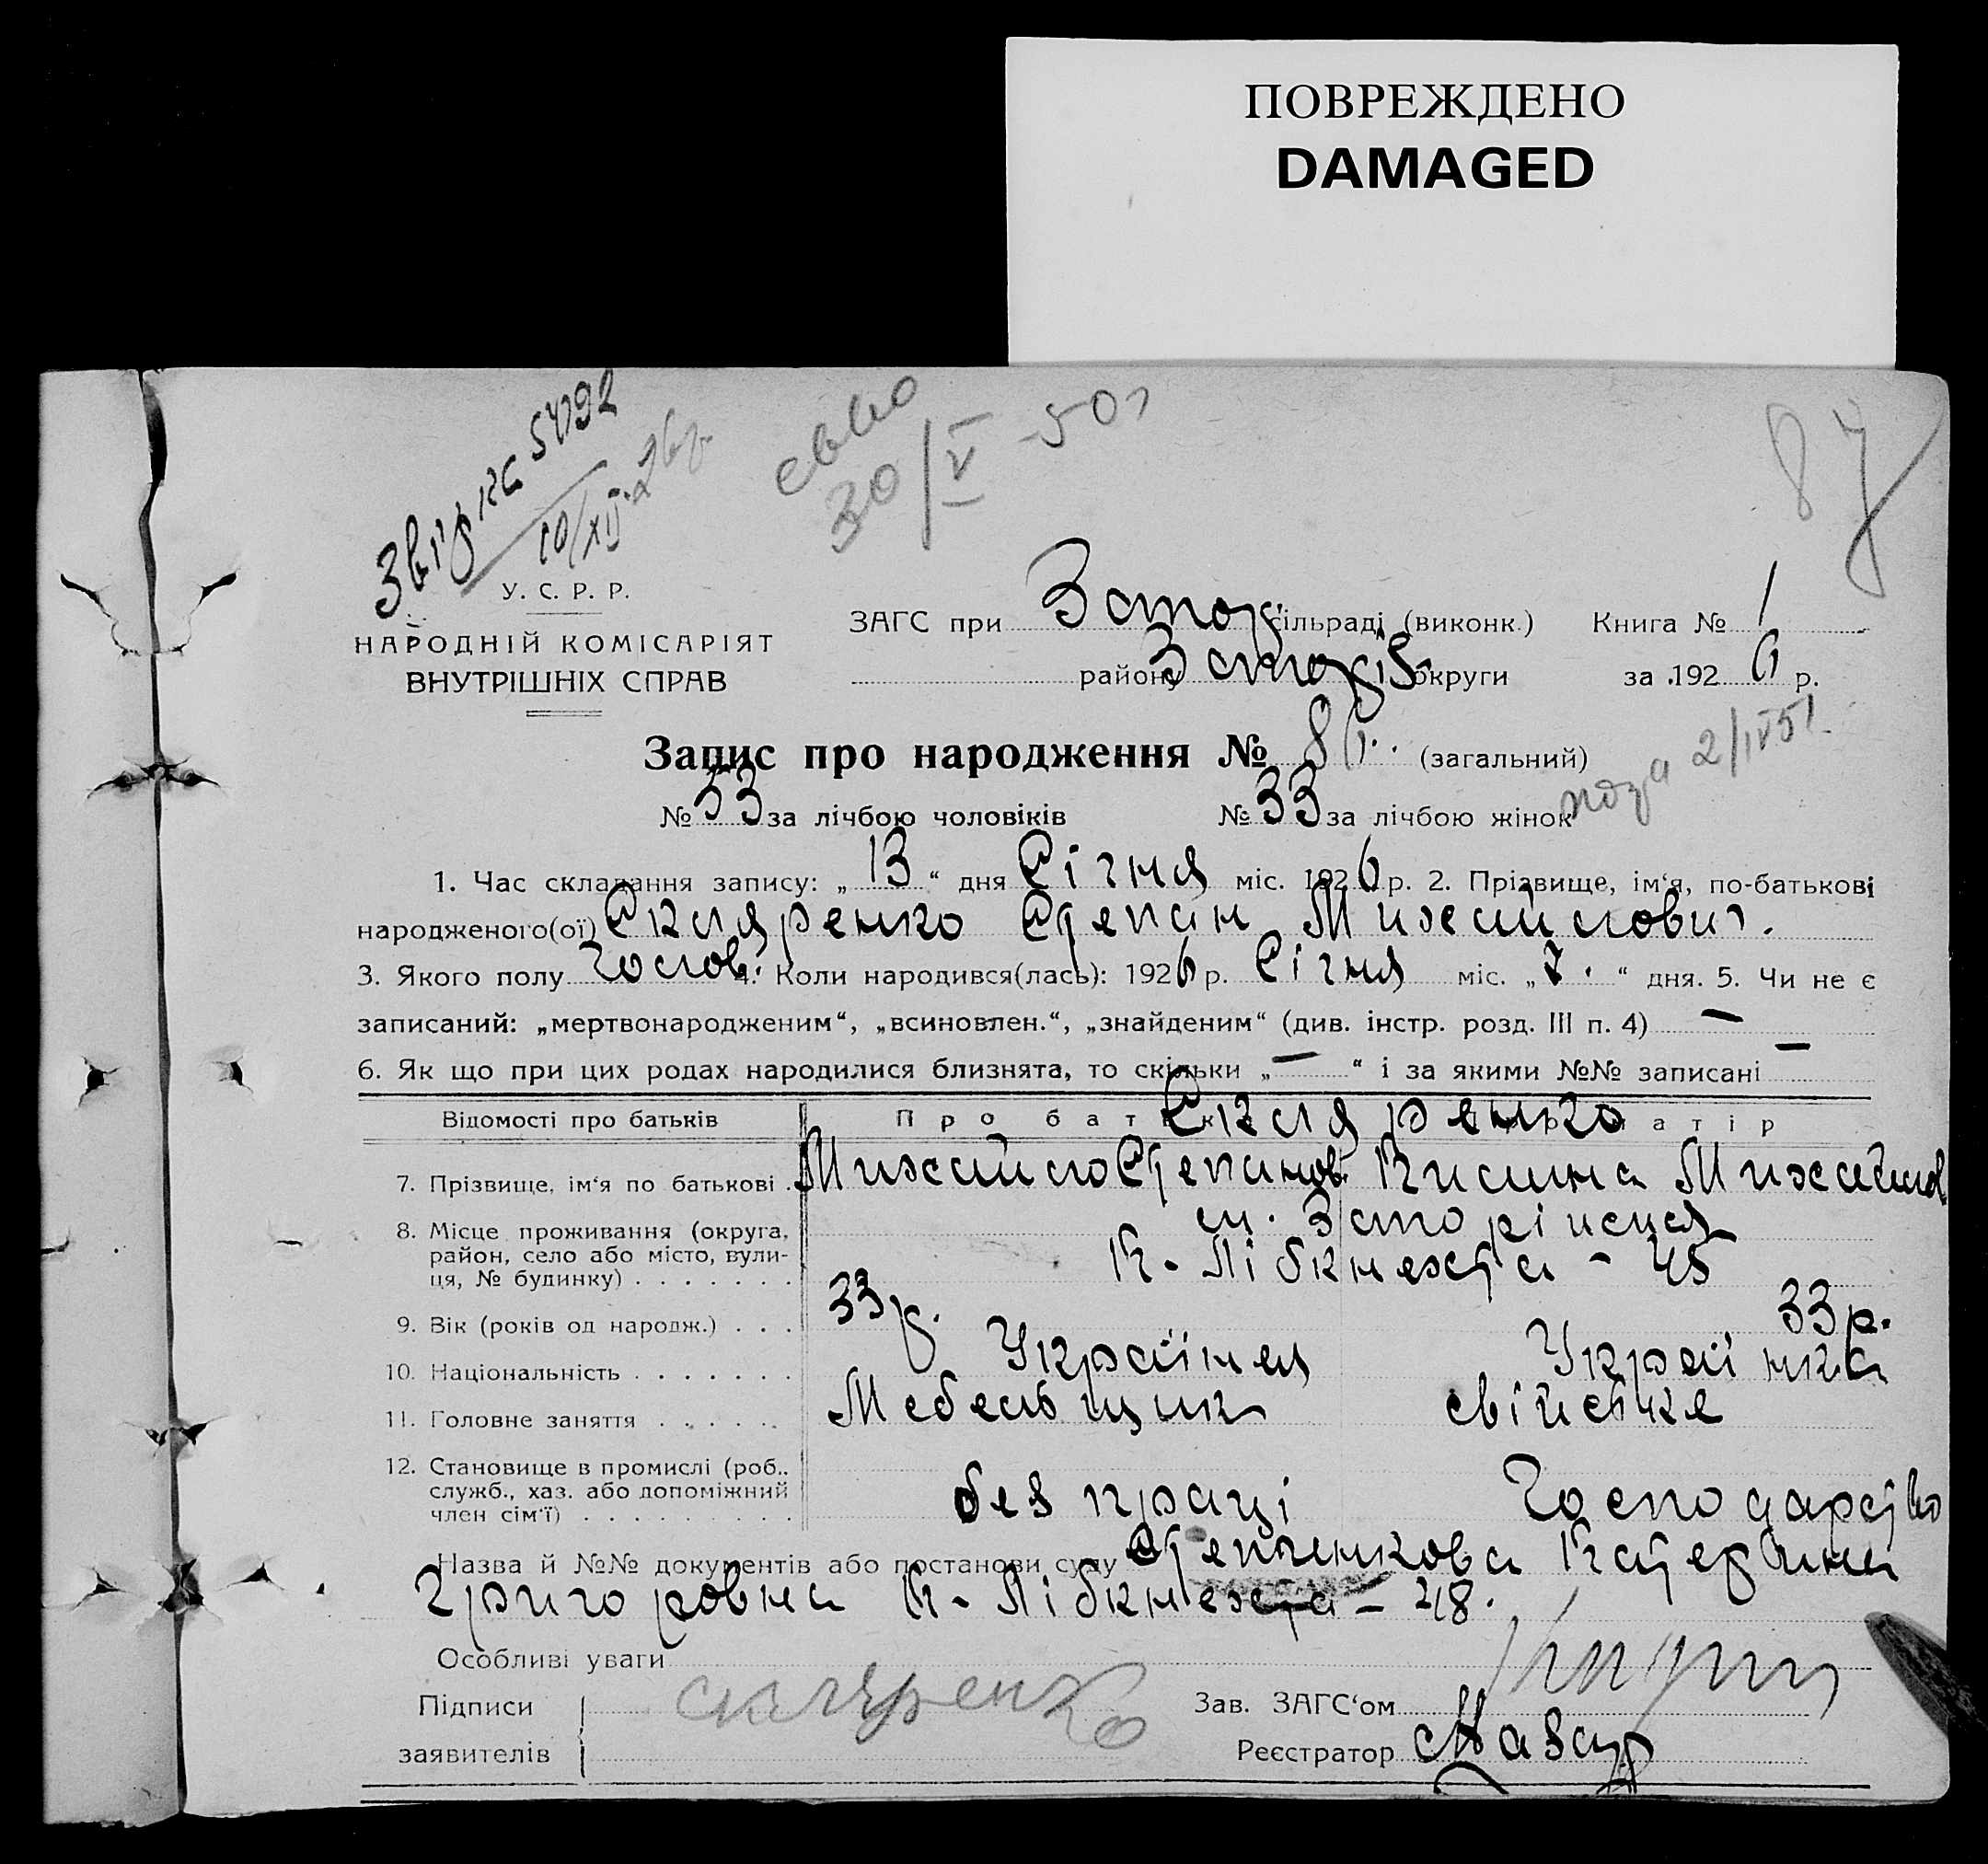 ПОВРЕЖДЕНО
DAMAGED
Звірка 5492
10/XII 26р
30/V -50г
87
У. С. Р. Р.
НАРОДНІЙ КОМІСАРІЯТ
ВНУТРІШНІХ СПРАВ
ЗАГС при Запор сільраді (виконк.) Книга № 1
району Запоріз округи за 1926 р.
Запис про народження № 86. (загальний)
2/IV 51.
№ 53 за лічбою чоловіків № 33 за лічбою жінок
1. Час складання запису: „13“ дня Січня міс. 1926 р. 2. Прізвище, ім‘я, по-батькові
народженого(ої) Скляренко Степан Михайлович.
3. Якого полу Чолов. 4. Коли народився(лась): 1926 р. Січня міс. „7.“ дня. 5. Чи не є
записаний: „мертвонародженим“, „всиновлен.“, „знайденим“ (див. інстр. розд. III п. 4) —
6. Як що при цих родах народилися близнята, то скільки „—“ і за якими №№ записані —
Відомості про батьків Про батьк Скляренко матір
7. Прізвище, ім‘я по батькові . Михайло Степанов. Килина Михайлов
8. Місце проживання (округа, район, село або місто, вулиця, № будинку) . . . . . . . м. Запоріжжя
К. Лібкнехта - 45
9. Вік (років од народж.) . . . 33 р. 33 р.
10. Національність . . . . . . . Українец Українка
11. Головне заняття . . . . . Мебельщик свійське
12. Становище в промислі (роб., служб., хаз. або допоміжний член сім‘ї) . . . . . . . . . без праці Господарство
Назва й №№ документів або постанови суду Степанкова Катерина
Григоровна К. Лібкнехта - 48.
Особливі уваги
Підписи
заявителів
скляренко
Зав. ЗАГС‘ом
Реєстратор Мазур